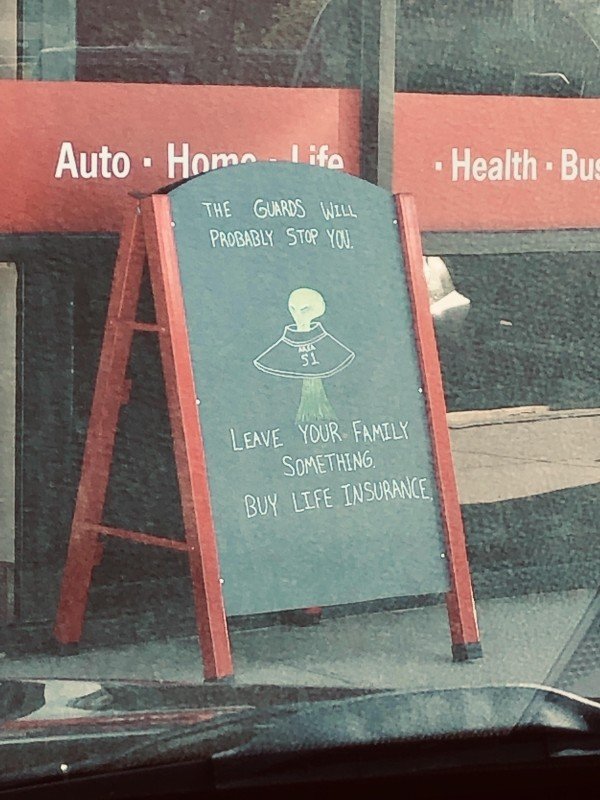 Auto · Home · Life
· Health · Bus
THE GUARDS WILL
PROBABLY STOP YOU.
AREA
51
LEAVE YOUR FAMILY
SOMETHING.
BUY LIFE INSURANCE.